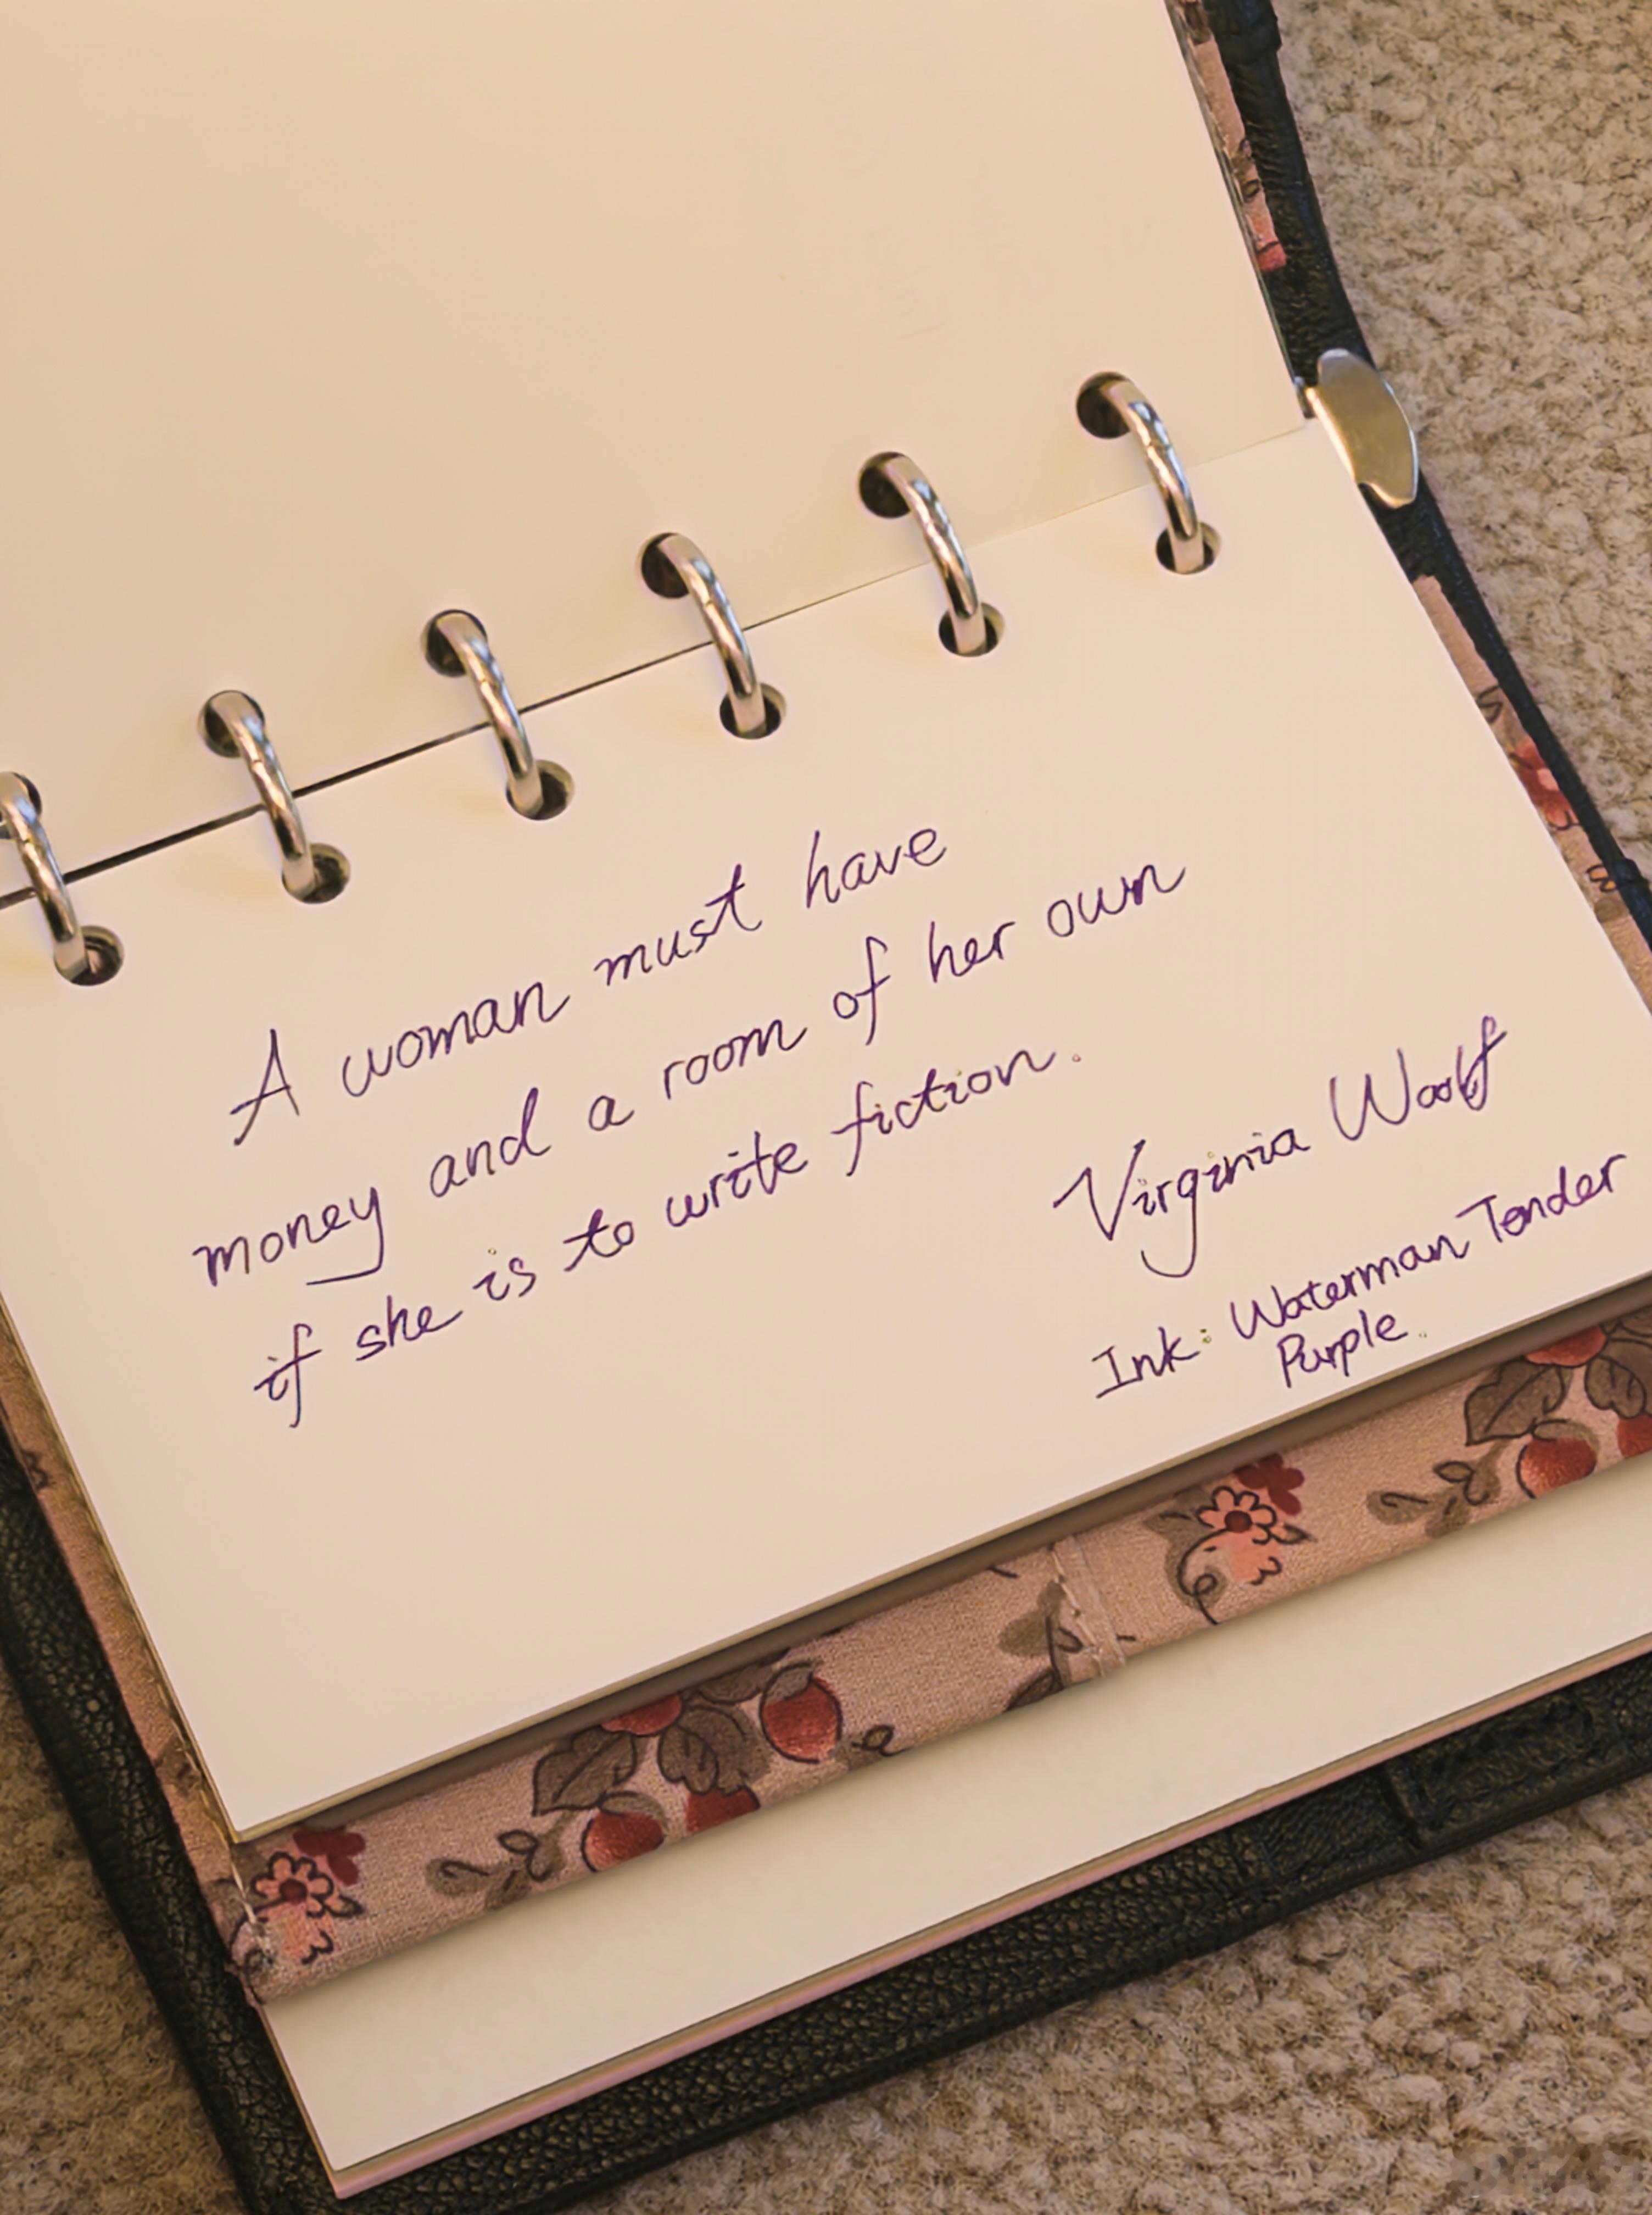 A woman must have
money and a room of her own
if she is to write fiction.
Virginia Woolf
Ink: Waterman Tender
Purple.